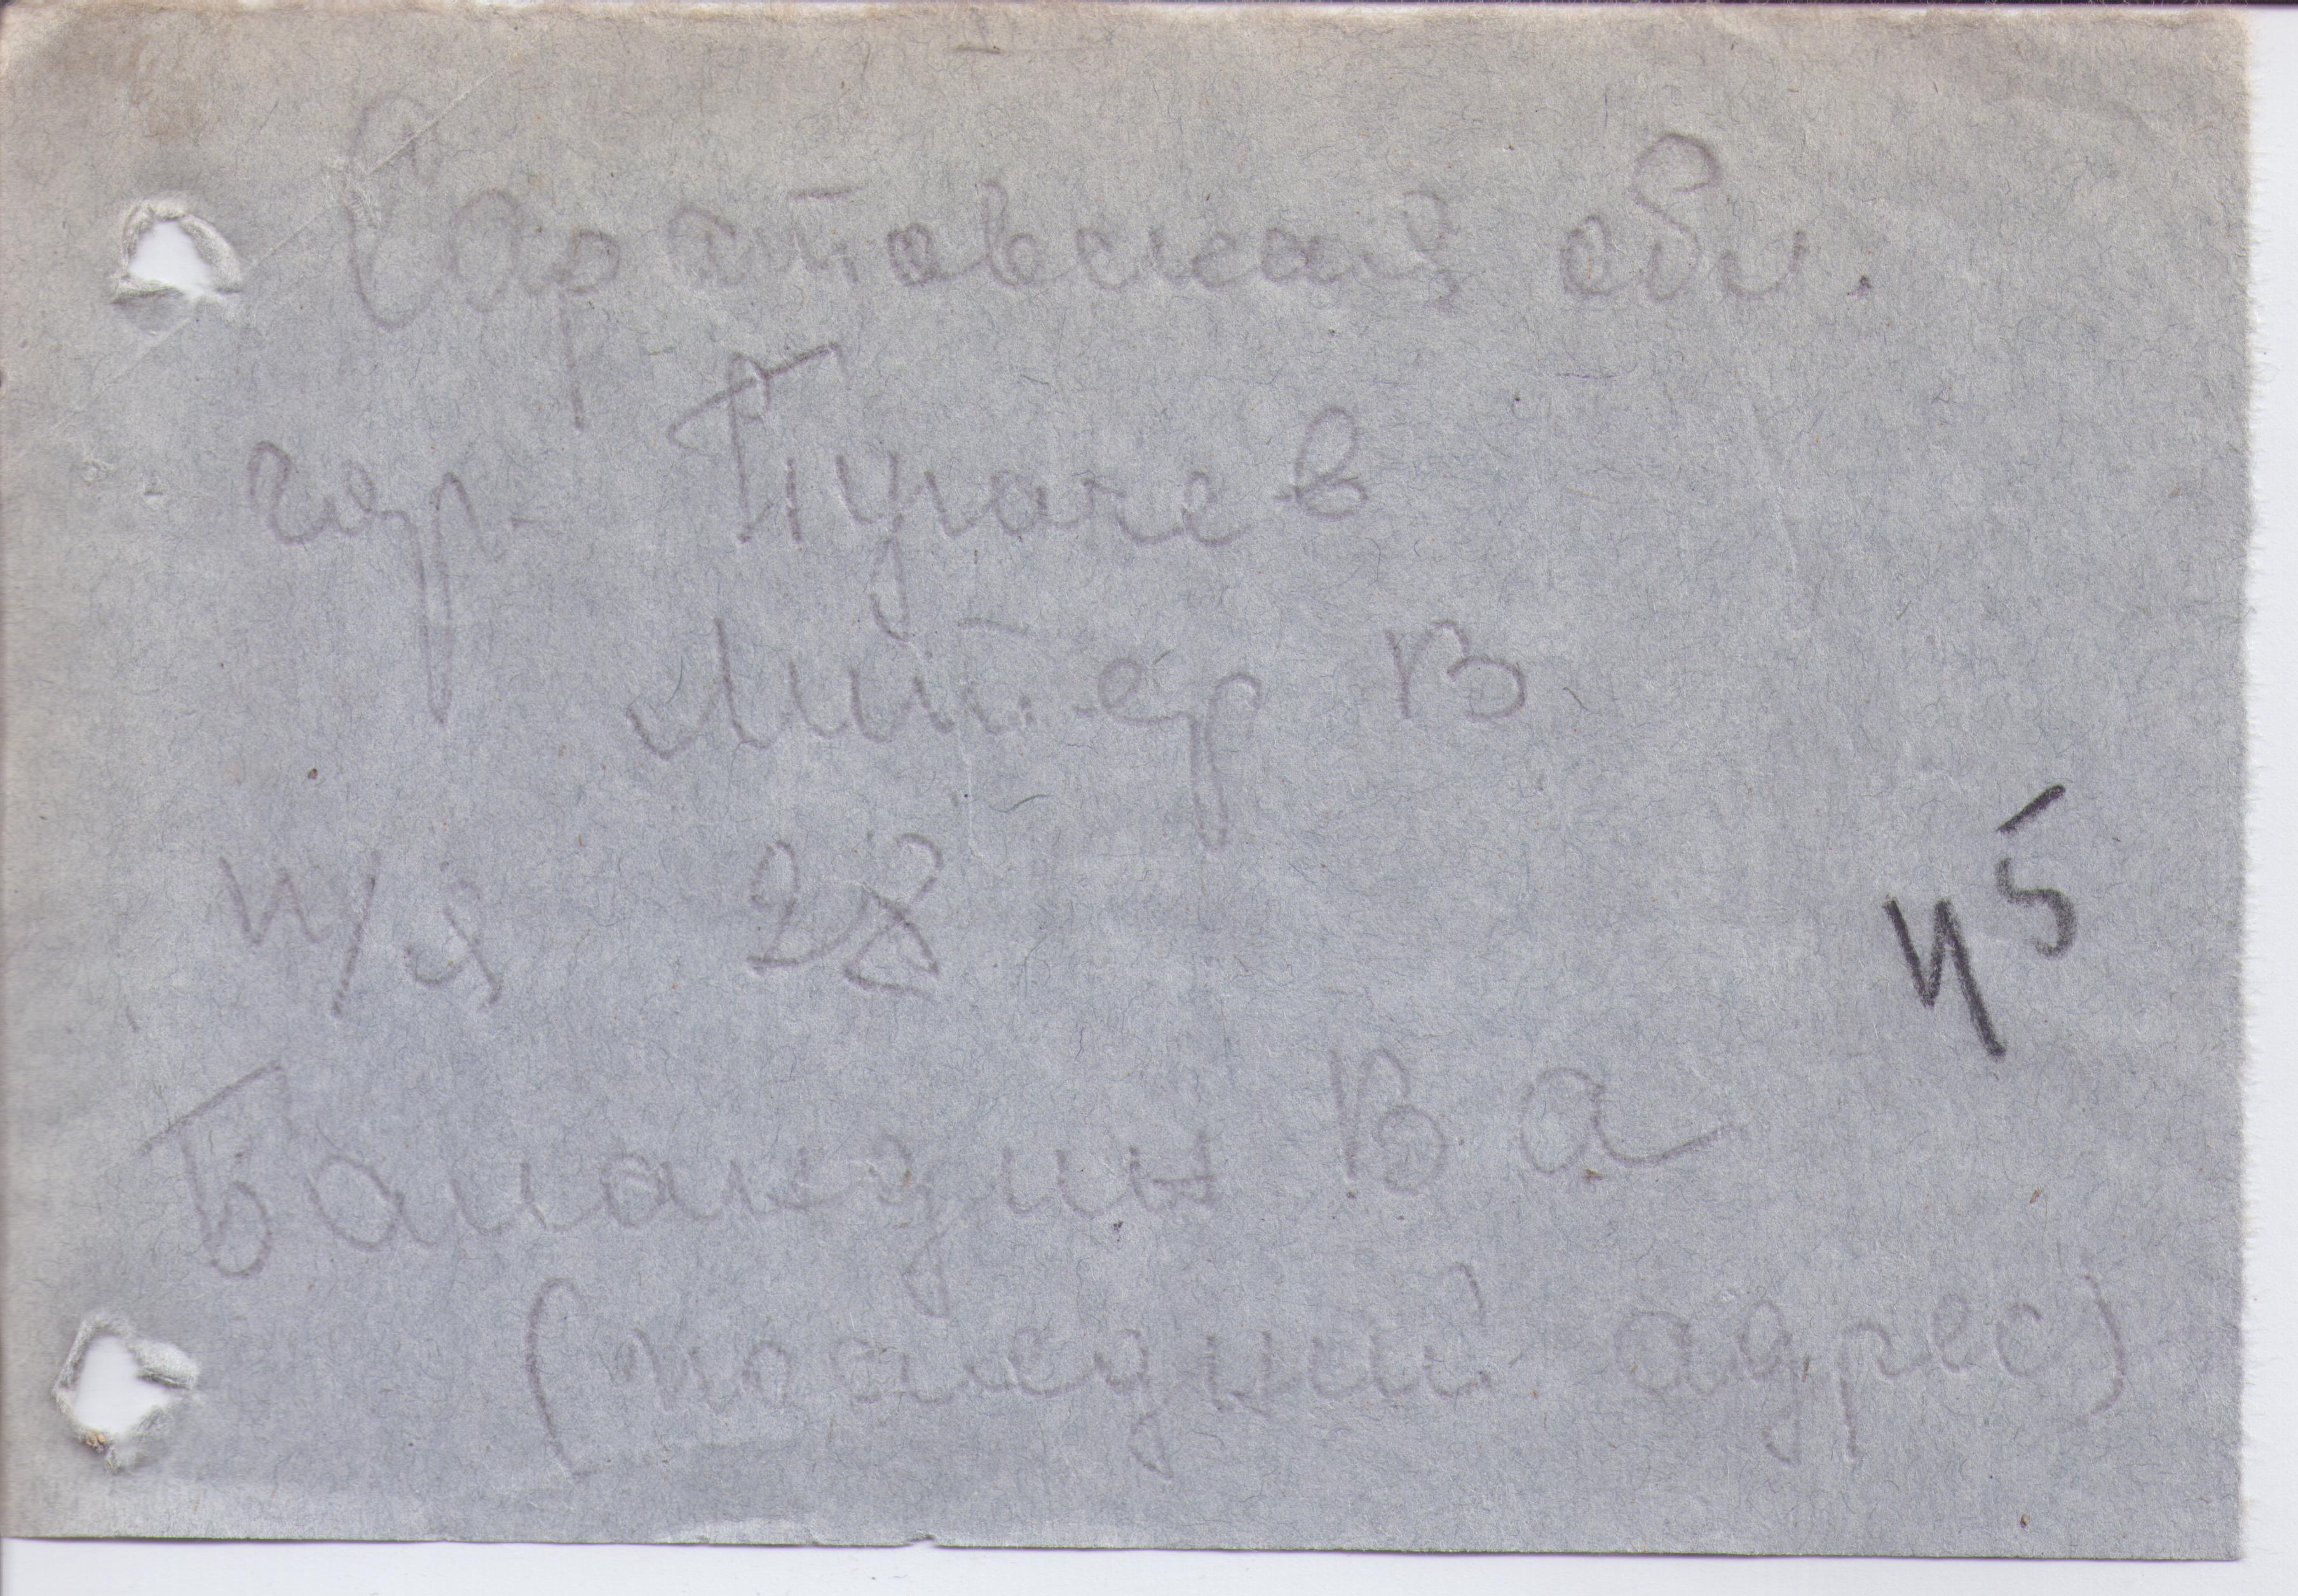 Саратовская обл.
гор. Пугачев
Литер В
п/я 28
45
Баландин В А
(последний адрес)